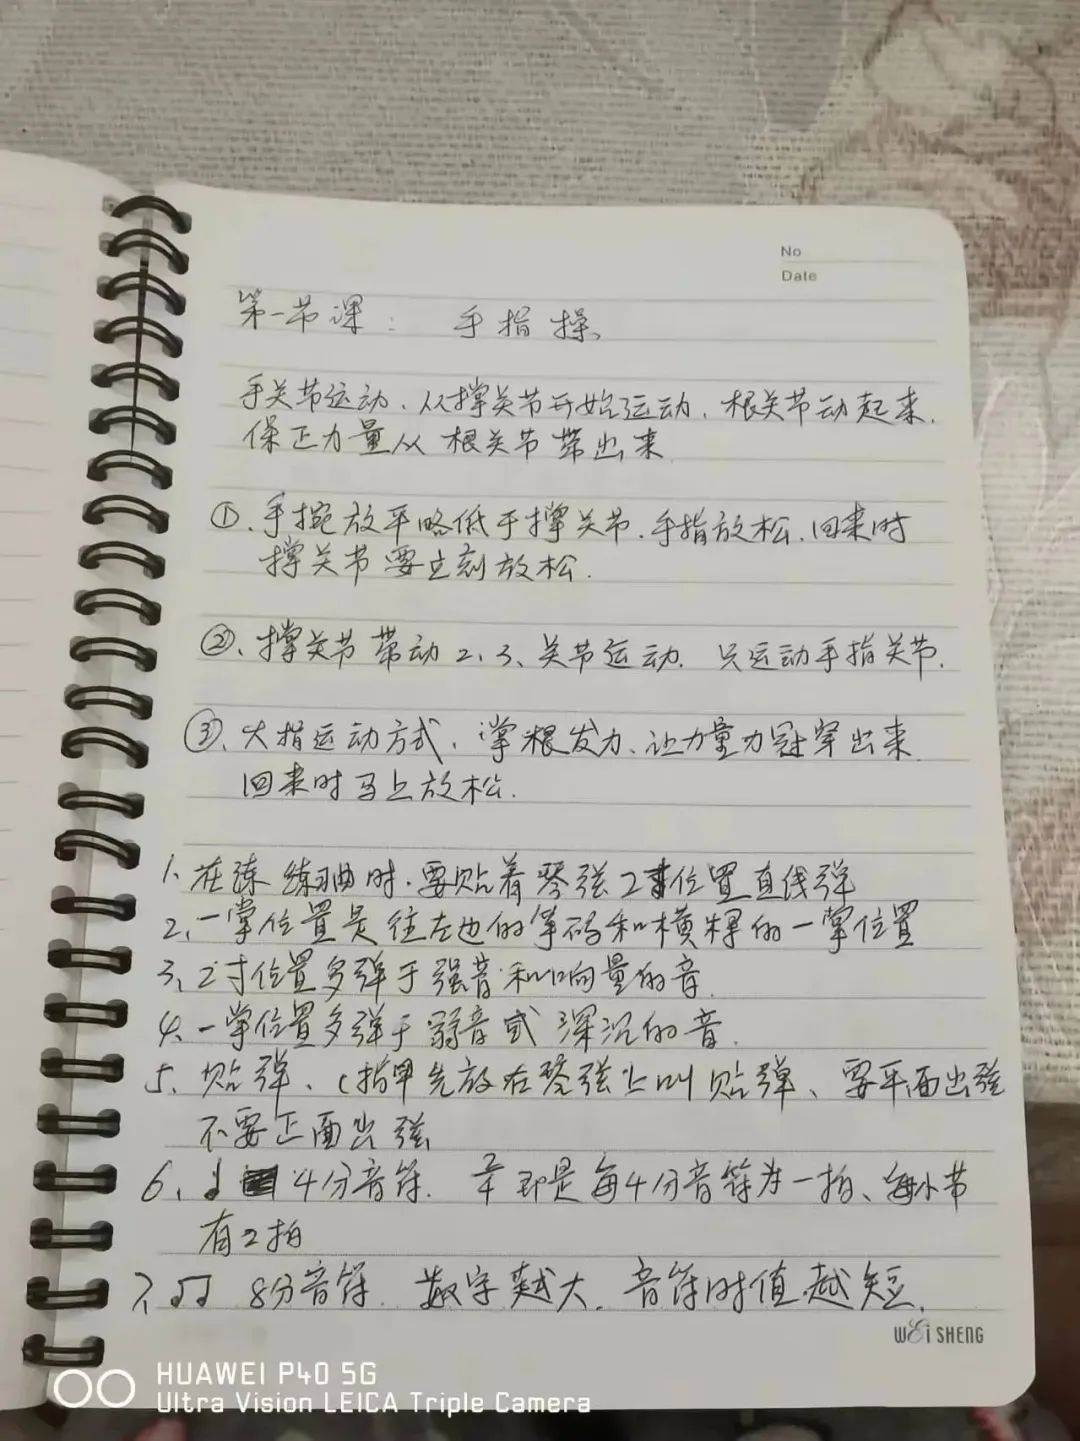 No
Date
第一节课： 手指操、
手关节运动、从撑关节开始运动、根关节动起来.
保正力量从根关节带出来
①、手捥放平略低于撑关节.手指放松.回来时
撑关节要立刻放松.
②、撑关节带动2、3、关节运动. 只运动手指关节.
③、大指运动方式、掌根发力、让力量力冠穿出来
回来时马上放松.
1、在练练习曲时.要贴着琴弦2寸位置直线弹
2、一掌位置是往左边的筝码和横梁的一掌位置
3、2寸位置多弹于强音和响量的音.
4、一掌位置多弹于弱音或深沉的音.
5、贴弹、(指甲先放在琴弦上叫贴弹、要平面出弦
不要正面出弦
6、♩ 4分音符. 2/4即是每4分音符为一拍、每小节
有2拍
7、♫ 8分音符. 数字越大.音符时值越短.
WEi SHENG
HUAWEI P40 5G
Ultra Vision LEICA Triple Camera